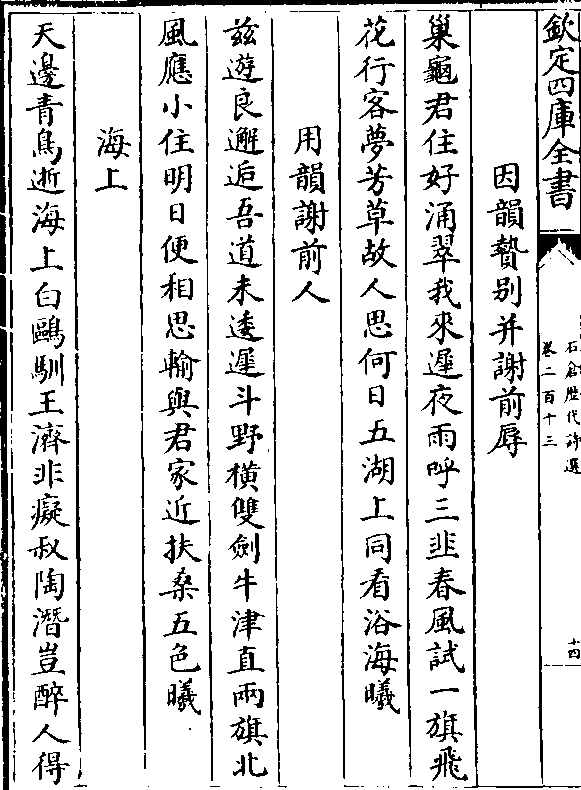 欽定四庫全書
石倉歷代詩選
卷二百十三
十四
因韻贄别并謝前辱
巢龜君住好涌翠我來遲夜雨呼三韭春風試一旗飛
花行客夢芳草故人思何日五湖上同看浴海曦
用韻謝前人
兹遊良邂逅吾道未逶遲斗野横雙劍牛津直兩旗北
風應小住明日便相思輸與君家近扶桑五色曦
海上
天邊青鳥逝海上白鷗馴王濟非癡叔陶潛豈醉人得